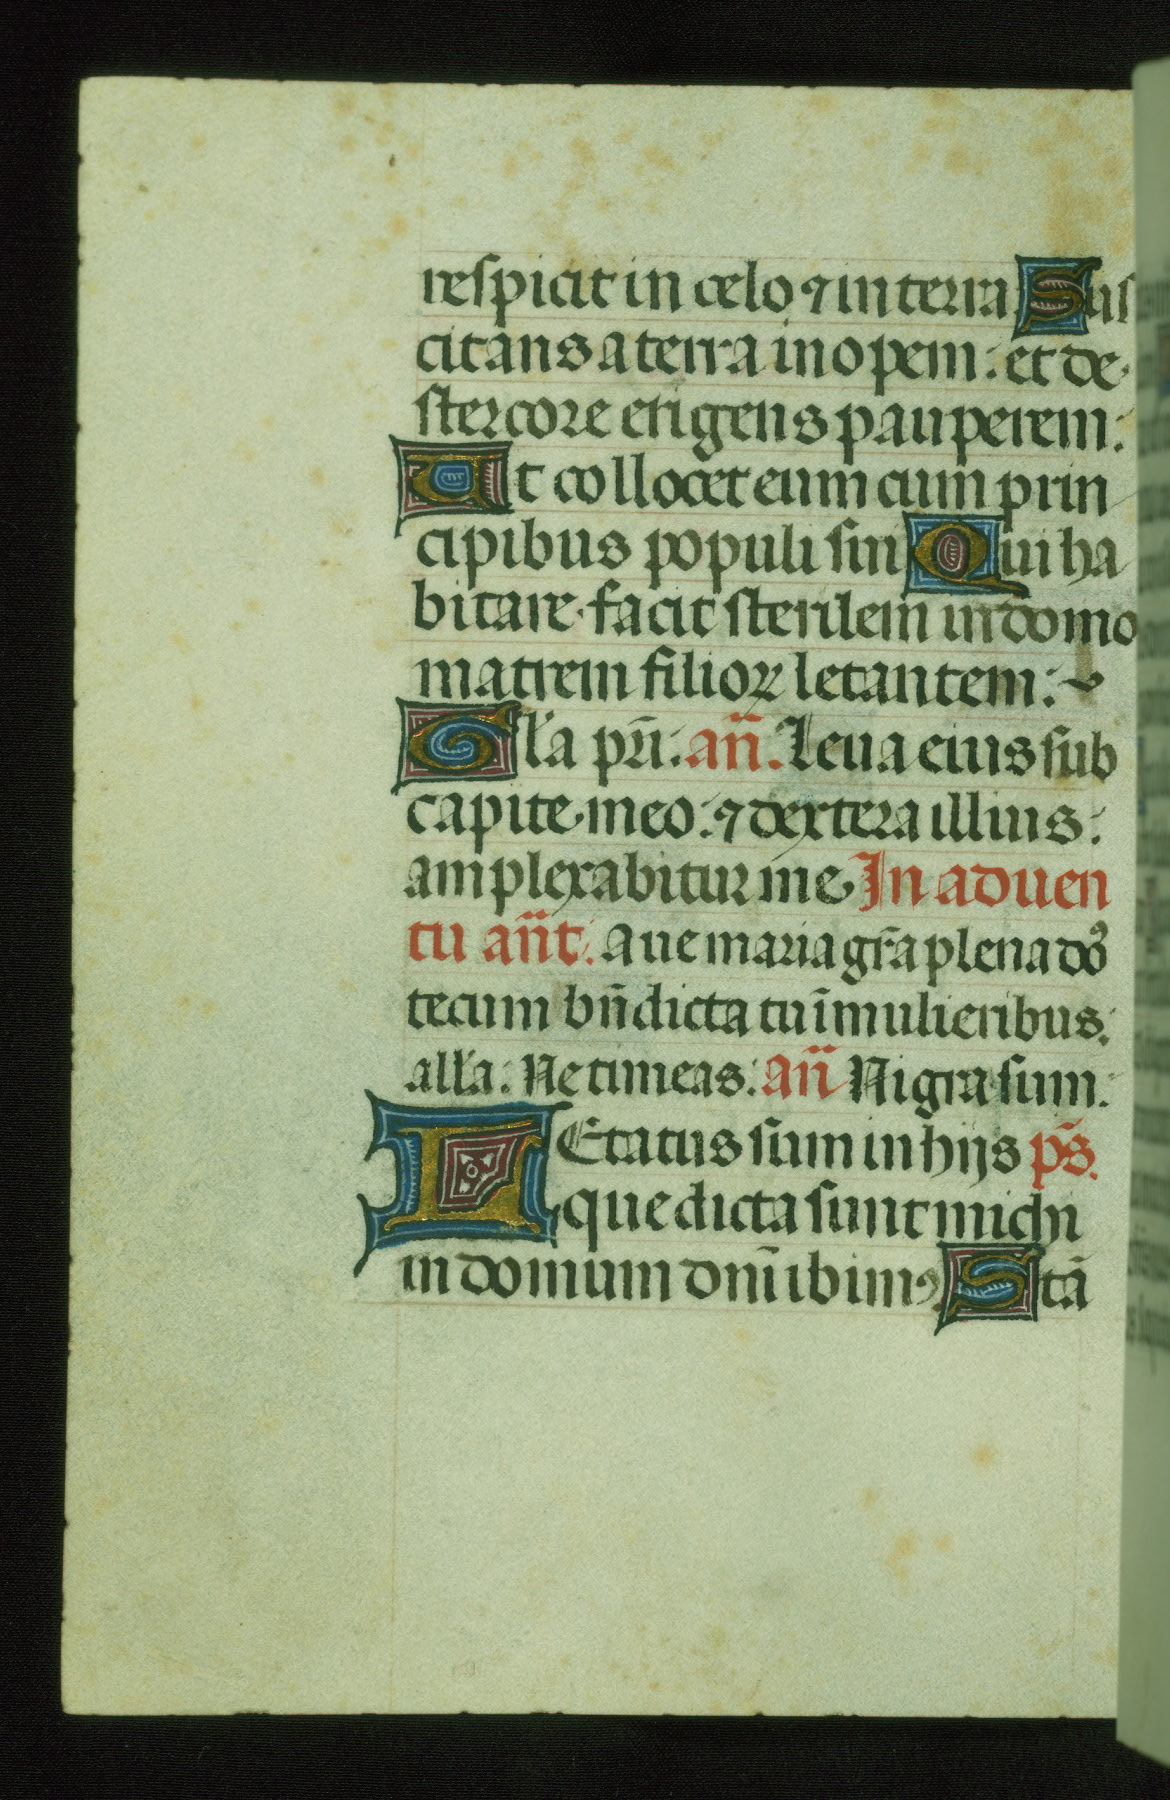 respicit in celo ⁊ in terra Sus
citans a terra inopem: et de
stercore erigens pauperem:
Ut collocet eum cum prin
cipibus populi sui Qui ha
bitare facit sterilem in domo
matrem filioꝝ letantem:
Gl̄la pr̄i: an̄. Leua eius sub
capite meo: ⁊ dextera illius:
amplexabitur me In aduen
tu an̄t. Aue maria gr̄a plena dō̄s
tecum bn̄dicta tu ī mulieribus:
all̄a: Ne timeas: an̄ Nigra sum:
LEtatus sum in hijs ps̄.
que dicta sunt michi
in domum dn̄i ibimꝰ Stā